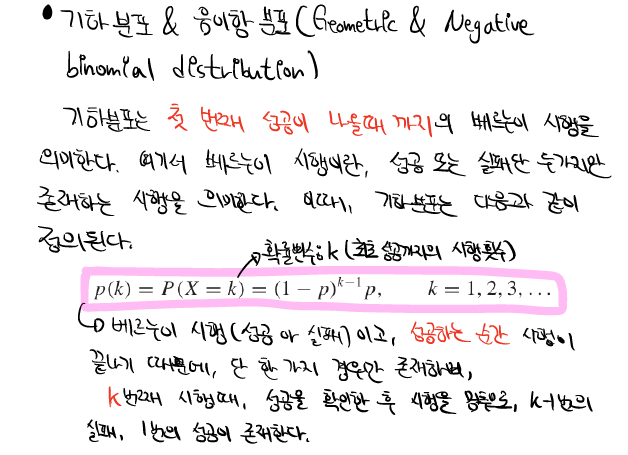 • 기하분포 & 음이항 분포 (Geometric & Negative
binomial distribution)
기하분포는 첫 번째 성공이 나올때 까지의 베르누이 시행을
의미한다. 여기서 베르누이 시행이란, 성공 또는 실패단 두가지만
존재하는 시행을 의미한다. 이때, 기하분포는 다음과 같이
정의된다.
확률변수 k (최초 성공까지의 시행횟수)
p(k) = P(X = k) = (1 − p)^{k−1} p, k = 1, 2, 3, ...
베르누이 시행(성공 or 실패)이고, 성공하는 순간 시행이
끝나기 때문에, 단 한 가지 경우만 존재하며,
k번째 시행때, 성공을 확인한 후 시행을 멈추므로, k-1번의
실패, 1번의 성공이 존재한다.